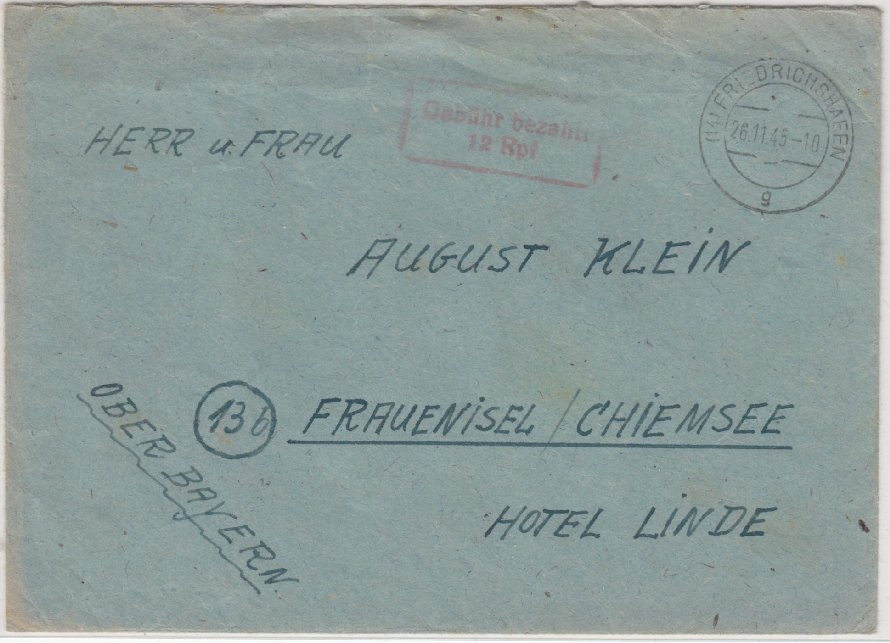 Gebühr bezahlt
12 Rpf
(14) FRIEDRICHSHAFEN
26.11.45-10
g
HERR u. FRAU
AUGUST KLEIN
13b FRAUENISEL / CHIEMSEE
OBER BAYERN.
HOTEL LINDE